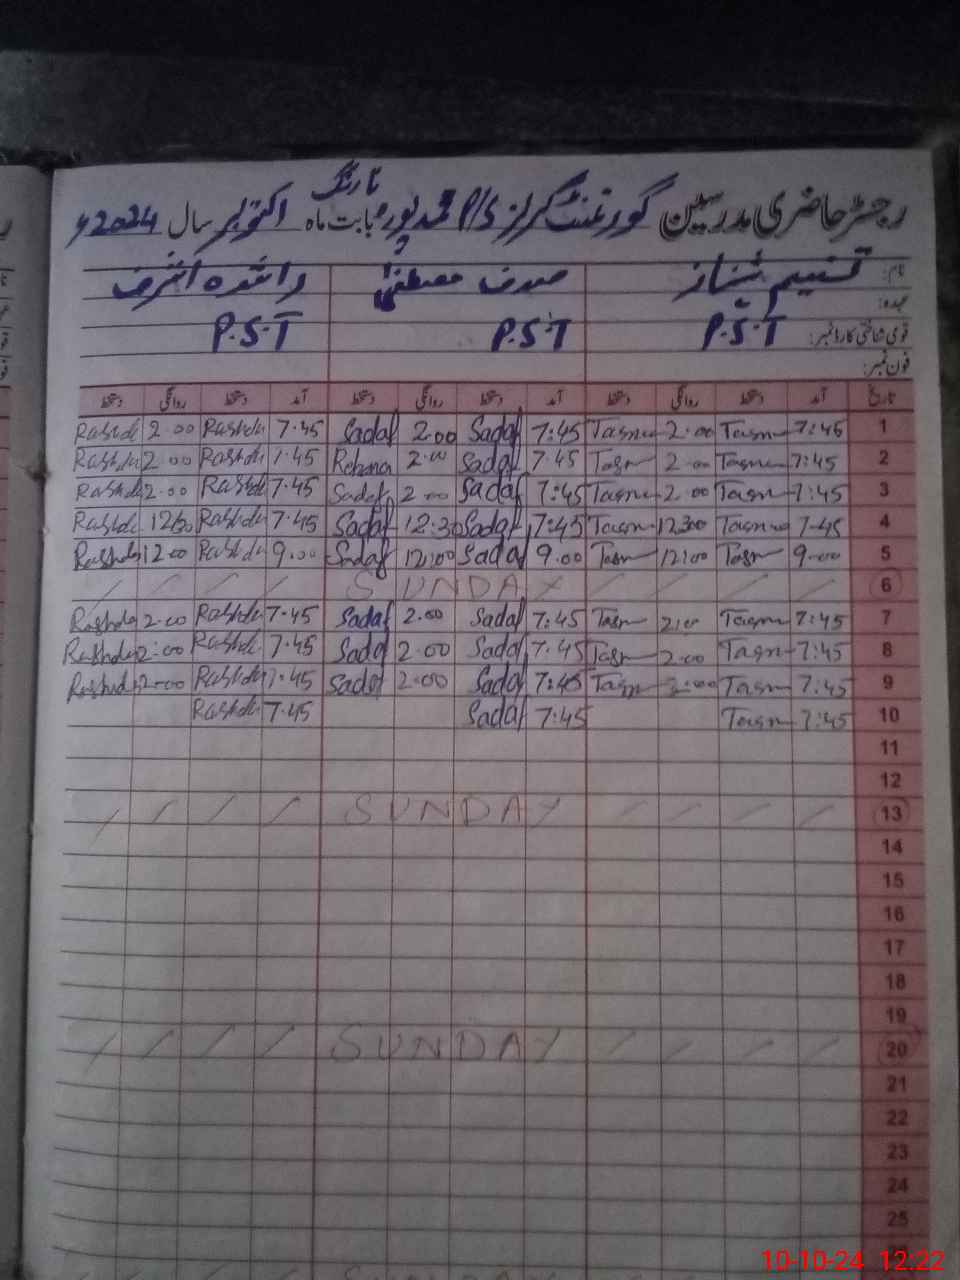 تا رنگ
رجسٹر حاضری مدرسین گورنمنٹ گرلز P/S محمد پورہ بابت ماہ اکتوبر سال 2024ء
نام: تسنیم شہناز صدف مصطفیٰ راشدہ اشرف
عہدہ:
قومی شناختی کارڈ نمبر: P.S.T P.S.T P.S.T
فون نمبر:
تاریخ آمد دستخط روانگی دستخط آمد دستخط روانگی دستخط آمد دستخط روانگی دستخط
Rashda 2.00 Rashda 7.45 Sadaf 2.00 Sadaf 7:45 Tasnm 2.00 Tasnm 7:45 1
Rashda 2.00 Rashda 7.45 Rehana 2.00 Sadaf 7.45 Tasn 2.00 Tasnm 7:45 2
Rashda 2.00 Rashda 7.45 Sadaf 2.00 Sadaf 7:45 Tasnm 2.00 Tasnm 7:45 3
Rashda 12:30 Rashda 7.45 Sadaf 12:30 Sadaf 7:45 Tasnm 12:30 Tasnm 7.45 4
Rashda 12.00 Rashda 9.00 Sadaf 12:00 Sadaf 9.00 Tasn 12:00 Tasn 9.00 5
SUNDAY 6
Rashda 2.00 Rashda 7.45 Sadaf 2.00 Sadaf 7:45 Tasn 2:00 Tasnm 7:45 7
Rashda 2:00 Rashda 7.45 Sadaf 2.00 Sadaf 7.45 Tasn 2.00 Tasn 7:45 8
Rashda 2.00 Rashda 7.45 Sadaf 2.00 Sadaf 7:45 Tasn 2:00 Tasn 7:45 9
Rashda 7.45 Sadaf 7:45 Tasn 7:45 10
11
12
SUNDAY 13
14
15
16
17
18
19
SUNDAY 20
21
22
23
24
25
10-10-24 12:22